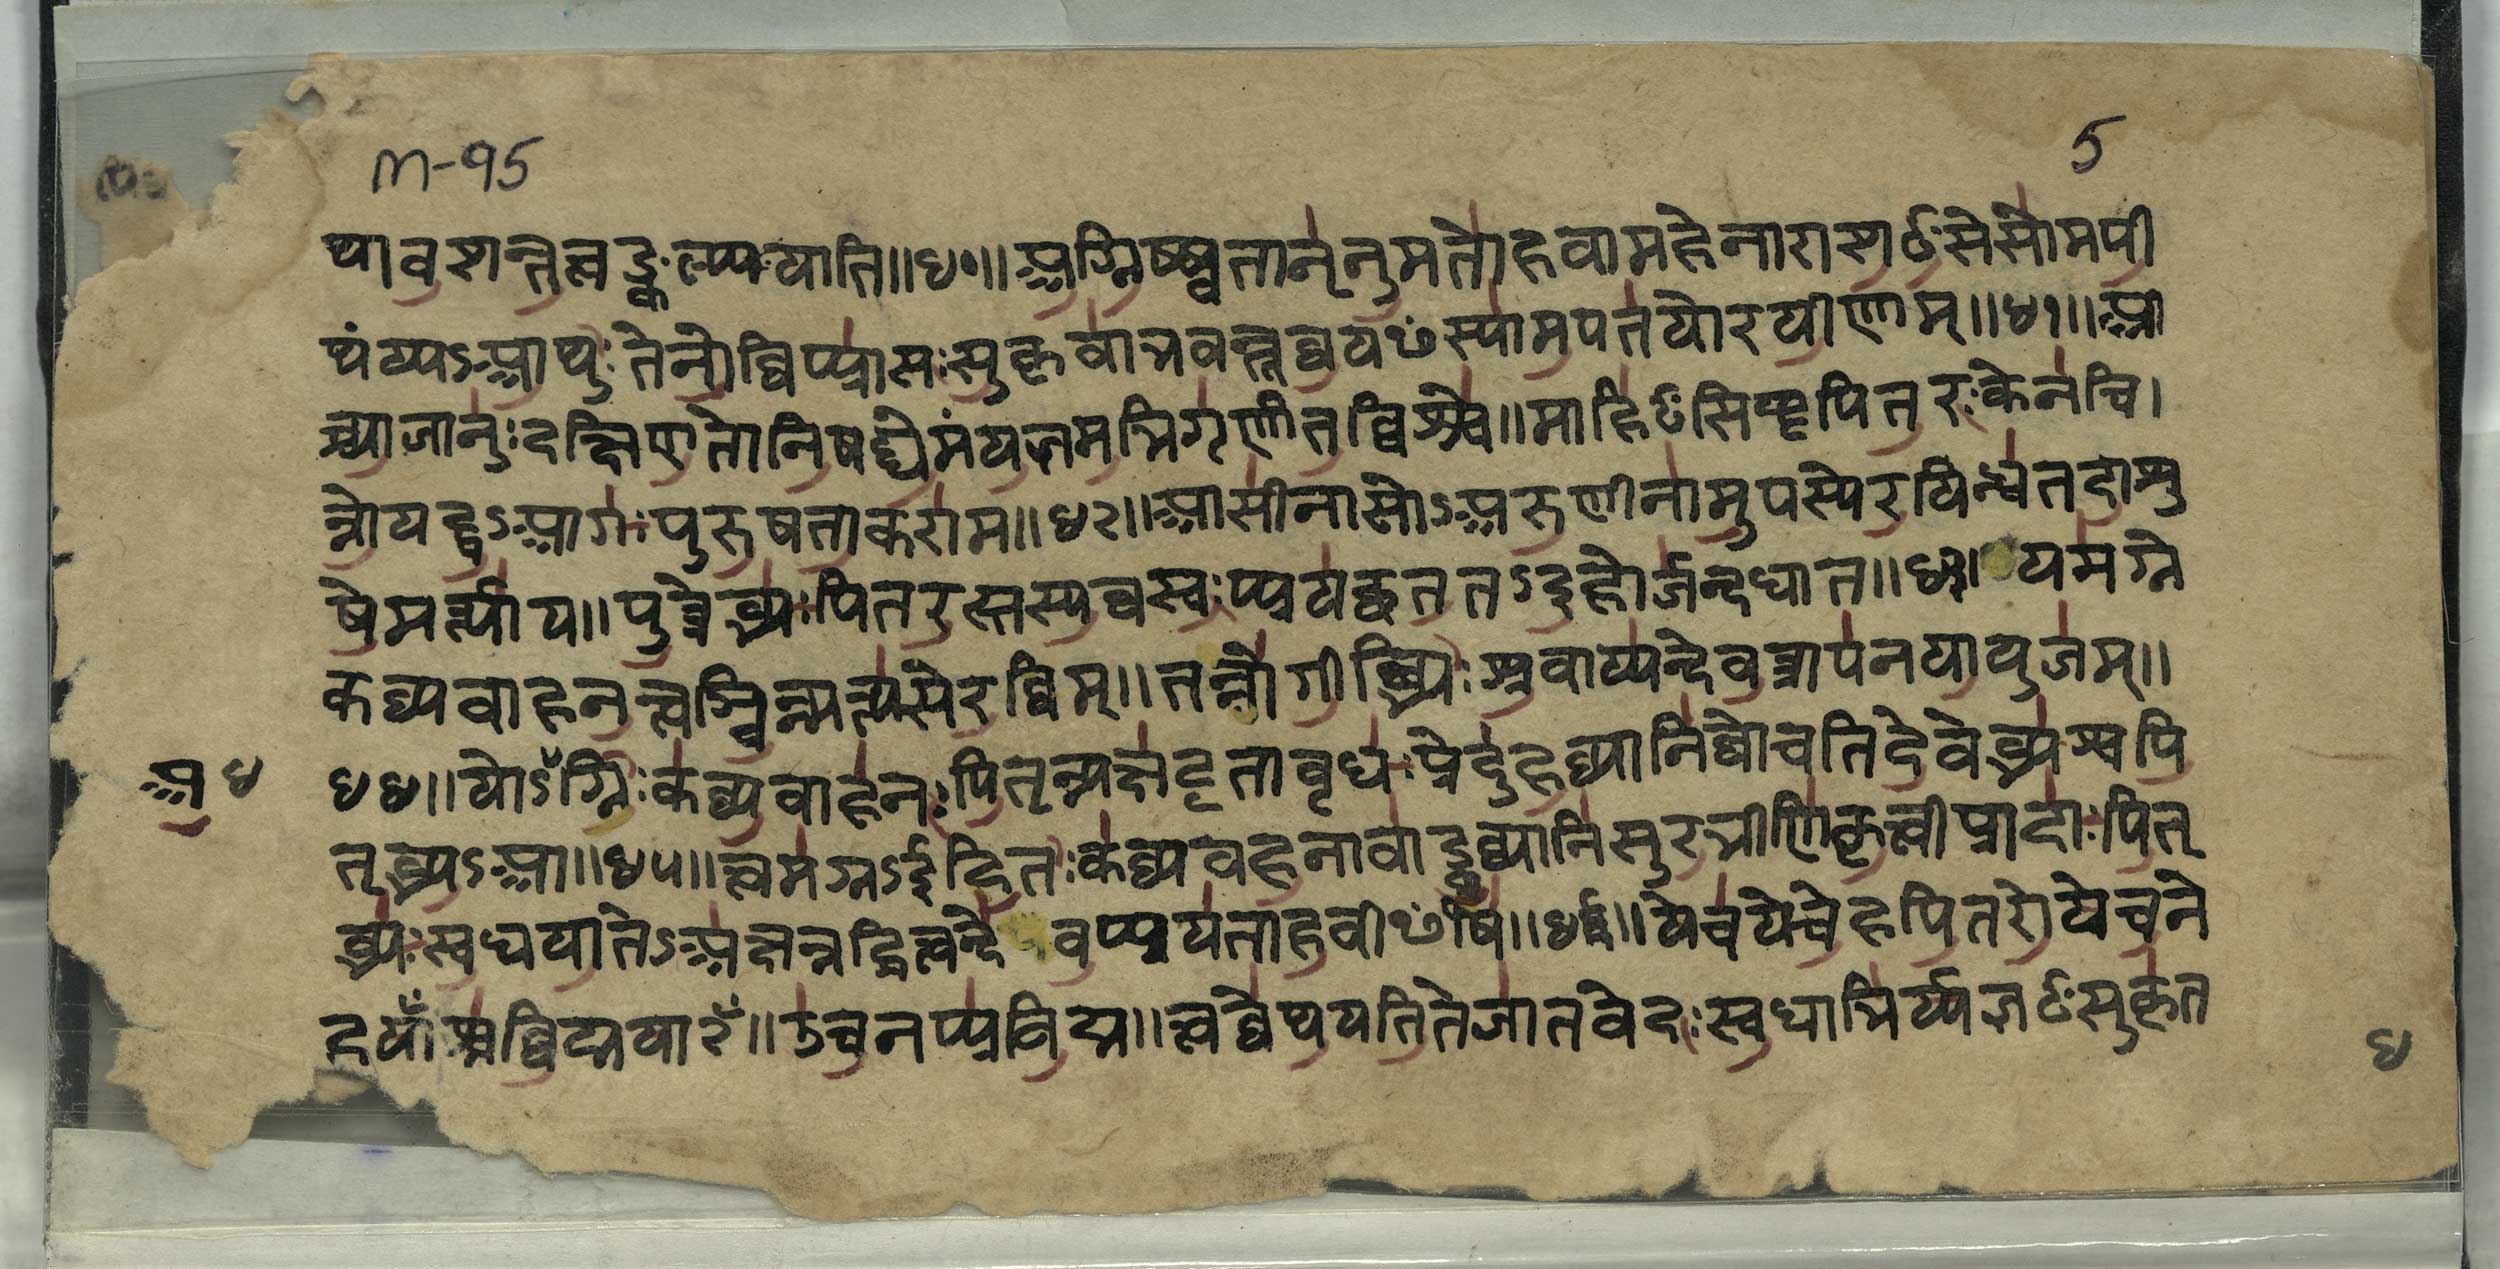 M-95
5
थावशन्तन्वङ्कल्प्पयाति॥६०॥अग्निष्ष्वत्तानृतुमतोहवामहेनाराशर्ठ०सेसोमपी
थंय्यऽआयुः तेनोव्विप्प्रासःसुहवाभवन्तुव्वयᳪस्यामपतयोरयीणाम्॥६१॥आ
च्च्याजानुःदक्षिणतोनिषद्येमंयज्ञमभिगृणीतव्विश्वे॥माहिर्ठ०सिष्टृपितरःकेनचि।
न्नोयद्वऽआगःपुरुषताकराम॥६२॥आसीनासोऽअरुणीनामुपस्थेरयिन्धत्तदाशु
षेमर्त्याय॥पुत्रेब्भ्यःपितरस्तस्यव्वस्वःप्प्रयच्छततऽइहोर्जन्दधात॥६३॥यमग्ने
कव्यवाहनत्त्वञ्चिन्मन्यसेरयिम्॥तन्नोगीर्ब्भिःश्रवाय्यन्देवत्रापनयायुजम्॥
६४॥योऽग्निःकव्यवाहनःपितृन्यक्षदृतावृधःप्रेदुहव्यानिव्वोचतिदेवेब्भ्यश्चपि
अ ६
तृब्भ्यऽआ॥६५॥त्वमग्नऽईडितःकव्यवाहनावाड्ढव्यानिसुरभीणिकृत्वीप्रादाःपितृ
ब्भ्यःस्वधयातेऽअक्षन्नद्धित्वन्देवप्प्रयताहवीᳪषि॥६६॥येचेहपितरोयेचने
हयाँश्चव्विद्मयाँ२॥उचनप्प्रविद्म॥त्वव्वेत्थयतितेजातवेदःस्वधाभिर्य्यज्ञर्ठ०सुकृत
६